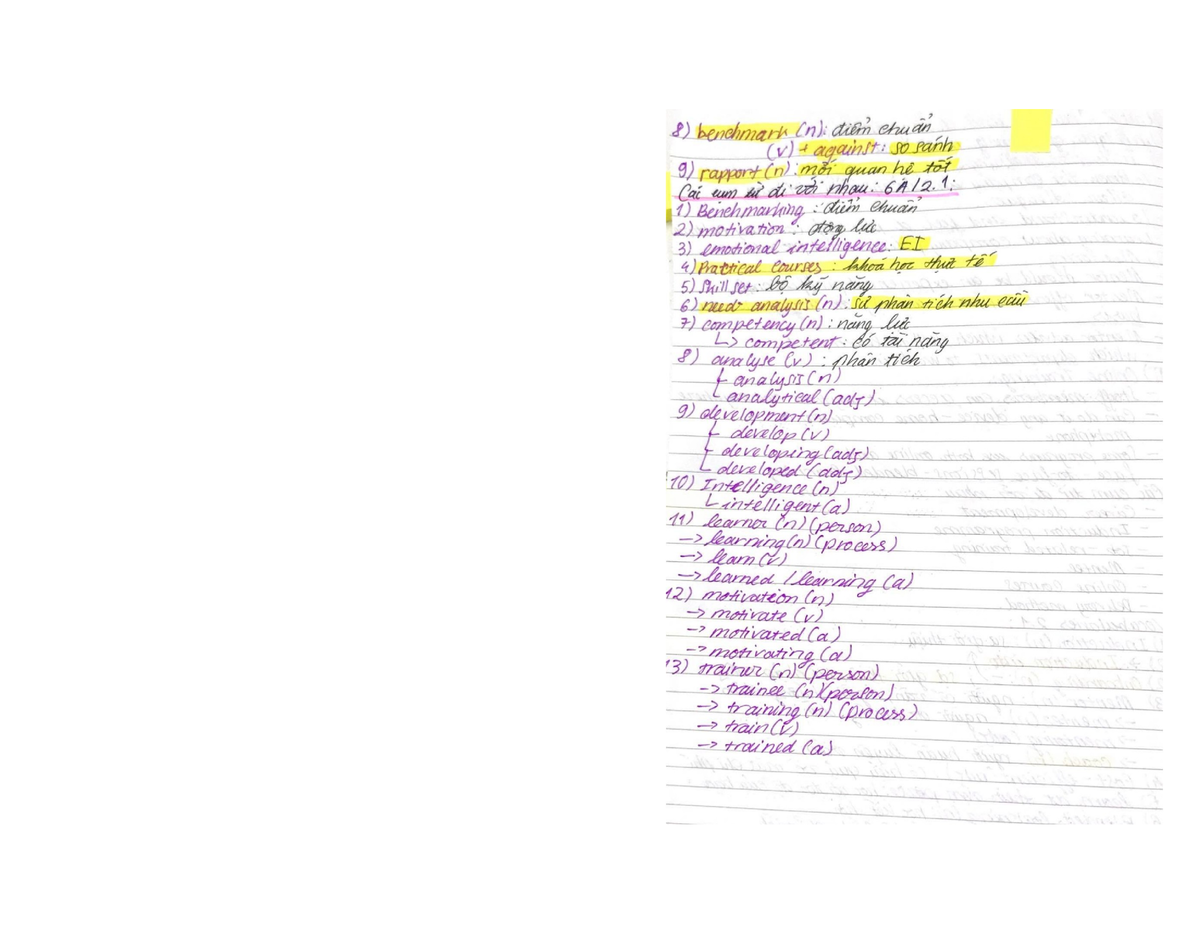 8) benchmark (n): điểm chuẩn
(v) + against: so sánh
9) rapport (n): mối quan hệ tốt
Các cụm từ đi với nhau: 6A/2.1:
1) Benchmarking: điểm chuẩn
2) motivation: động lực
3) emotional intelligence: EI
4) Practical courses: khoá học thực tế
5) Skill set: bộ kỹ năng
6) need analysis (n): sự phân tích nhu cầu
7) competency (n): năng lực
↳ competent: có tài năng
8) analyse (v): phân tích
analysis (n)
analytical (adj)
9) development (n)
develop (v)
developing (adj)
developed (adj)
10) Intelligence (n)
intelligent (a)
11) learner (n) (person)
-> learning (n) (process)
-> learn (v)
-> learned / learning (a)
12) motivation (n)
-> motivate (v)
-> motivated (a)
-> motivating (a)
13) trainer (n) (person)
-> trainee (n) (person)
-> training (n) (process)
-> train (v)
-> trained (a)